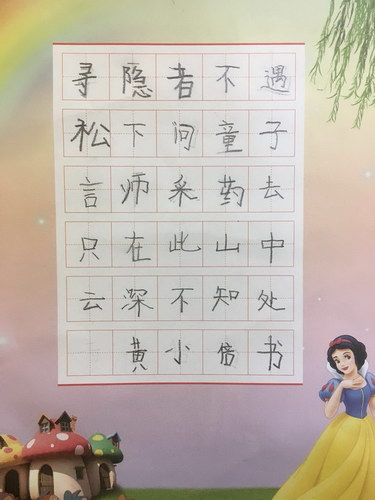 寻隐者不遇
松下问童子
言师采药去
只在此山中
云深不知处
黄小倍书